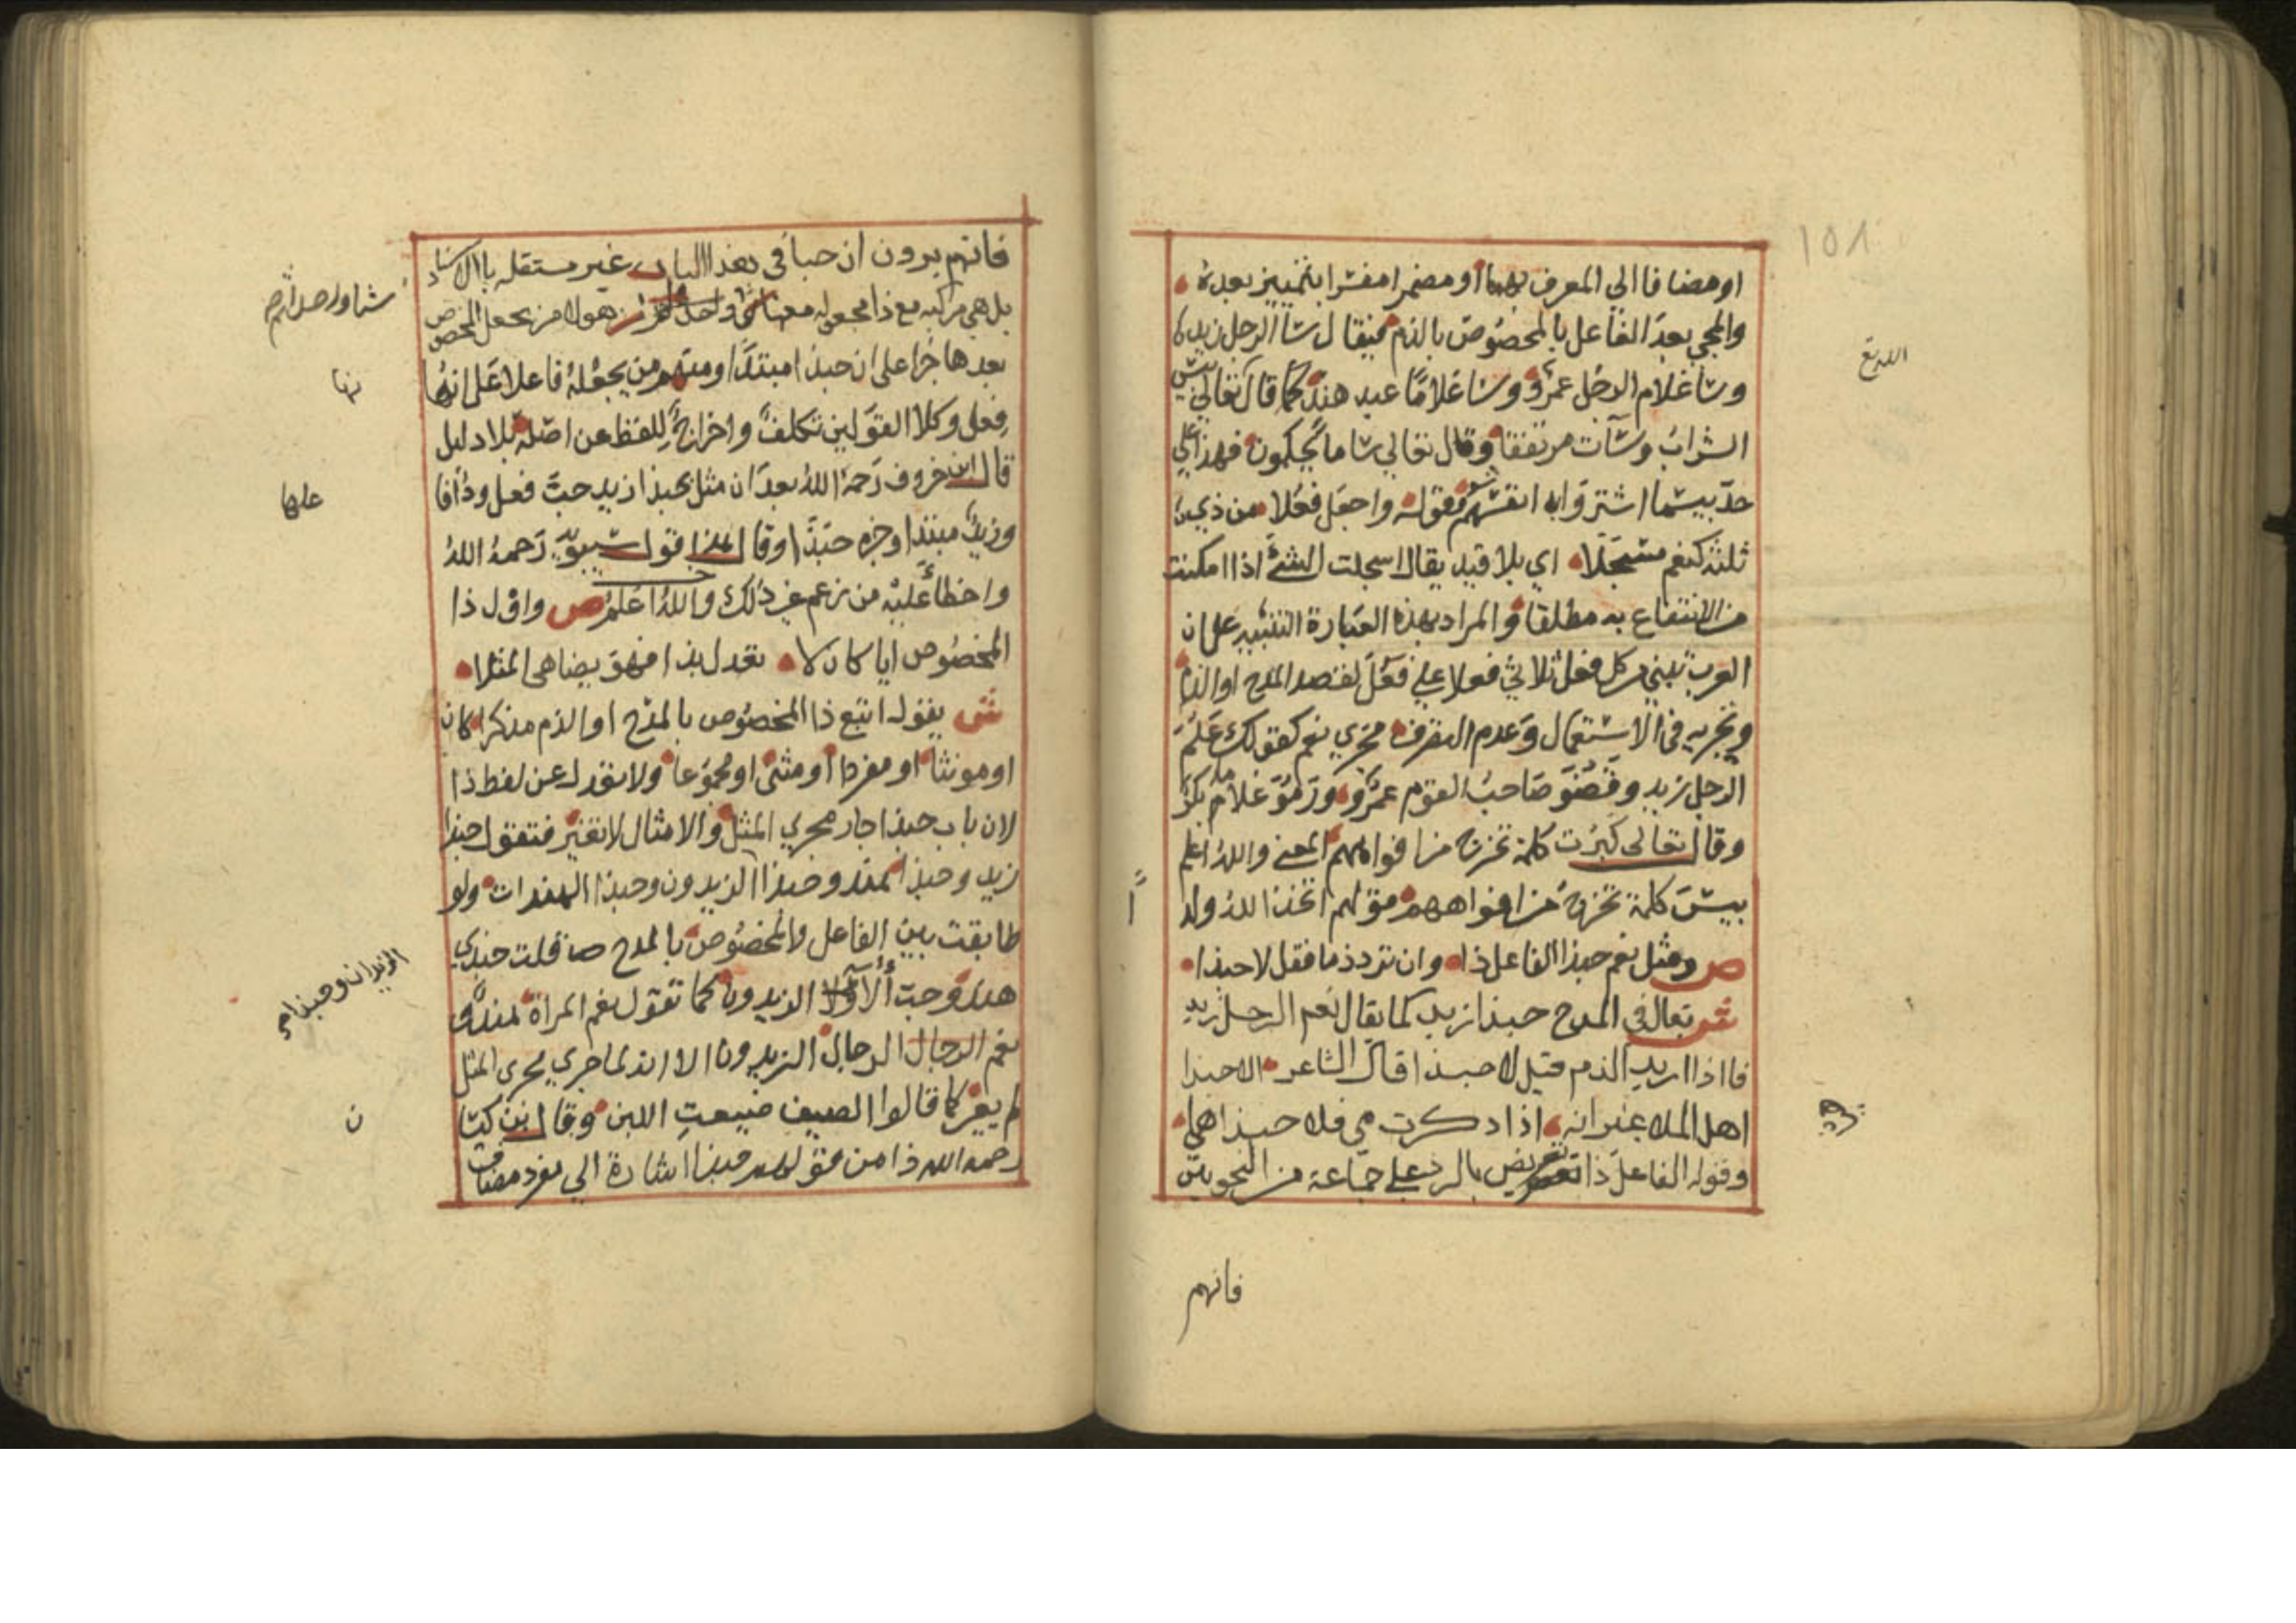 ١٥٨
او مضافا الي المعرف بهما او مضمرا مفسرا بتمييز بعده
والمجي بعد الفاعل بالمخصوص بالذم فيقال ساا الرجل زيد
وسا غلام الرجل عمرو وسا غلاما عبد هند كما قال تعالي بيس
الشراب وسآت مرتفقا وقال تعالي سا ما يحكمون فهذا علي
حد بيسما اشتروا به انفسهم وقوله واجعل فعلا من ذي
ثلثة كنعم مسجلا اي بلا قيد يقال اسجلت الشئ اذا امكنت
من الانتفاع به مطلقا والمراد بهذه العبارة التنبيه علي ان
العرب تبني من كل فعل ثلاثي فعلا علي فعل لقصد المدح او الذم
وتجريه في الاستعمال وعدم التصرف مجري نعم كقولك علم
الرجل زيد وقضو صاحب القوم عمرو ورمو غلام بكر
وقال تعالى كبرت كلمة تخرج من افواههم المعني والله اعلم
بيس كلمة تخرج من افواههم قولهم اتخذ الله ولد
ص ومثل نعم حبذا الفاعل ذا وان ترد ذما فقل لا حبذا
ش يقال في المدح حبذا زيد كما يقال نعم الرجل زيد
فااذا اريد الذم قيل لا حبذا قال الشاعر الا حبذا
اهل الملا غير انه اذا ذكرت مي فلا حبذا هيا
وقوله الفاعل ذا تعريض بالرد علي جماعة من النحويين
فانهم
فانهم يرون ان حبا في هذا الباب غير مستقله باالاسناد
بل هي مركبه مع ذا مجعوله معها شيا واحدا من هولا من يجعل المخصوص
بعدها خبرا على ان حبذا مبتدا ومنهم من يجعله فاعلا على انها
فعل وكلا القولين تكلف واخراج للفظ عن اصله بلا دليل
قال ابن خروف رحمه الله بعد ان مثل بحبذا زيد حب فعل وذا فا
وزيد مبتدا وخبره حبذا وقال هذا قول سيبويه رحمه الله
واخطا عليه من زعم غير ذلك والله اعلم ص واول ذا
المخصوص ايا كان لا تعدل بذا فهو يضاهي المثلا
ش يقول اتبع ذا المخصوص بالمدح او الذم مذكرا كان
او مونثا او مفردا او مثنى او مجموعا ولا تعدل عن لفظ ذا
لان باب حبذا جار مجري المثل والامثال لا تغير فتقول حبذا
زيد وحبذا هند وحبذا الزيدون وحبذا الهندات ولو
طابقت بين الفاعل والمخصوص بالمدح قلت حبذي
هند وحب اولا الزيدون كما تقول نعم المراة هند و
نعم الرجال الرجال الزيدون الا انه لما جري مجري المثل
لم يغير كما قالوا الصيف ضيعت اللبن وقال ابن كيسا
رحمه الله ذا من قولهم حبذا اشارة الي مفرد مضاف
عليها
الزيدان وحبذا
ن